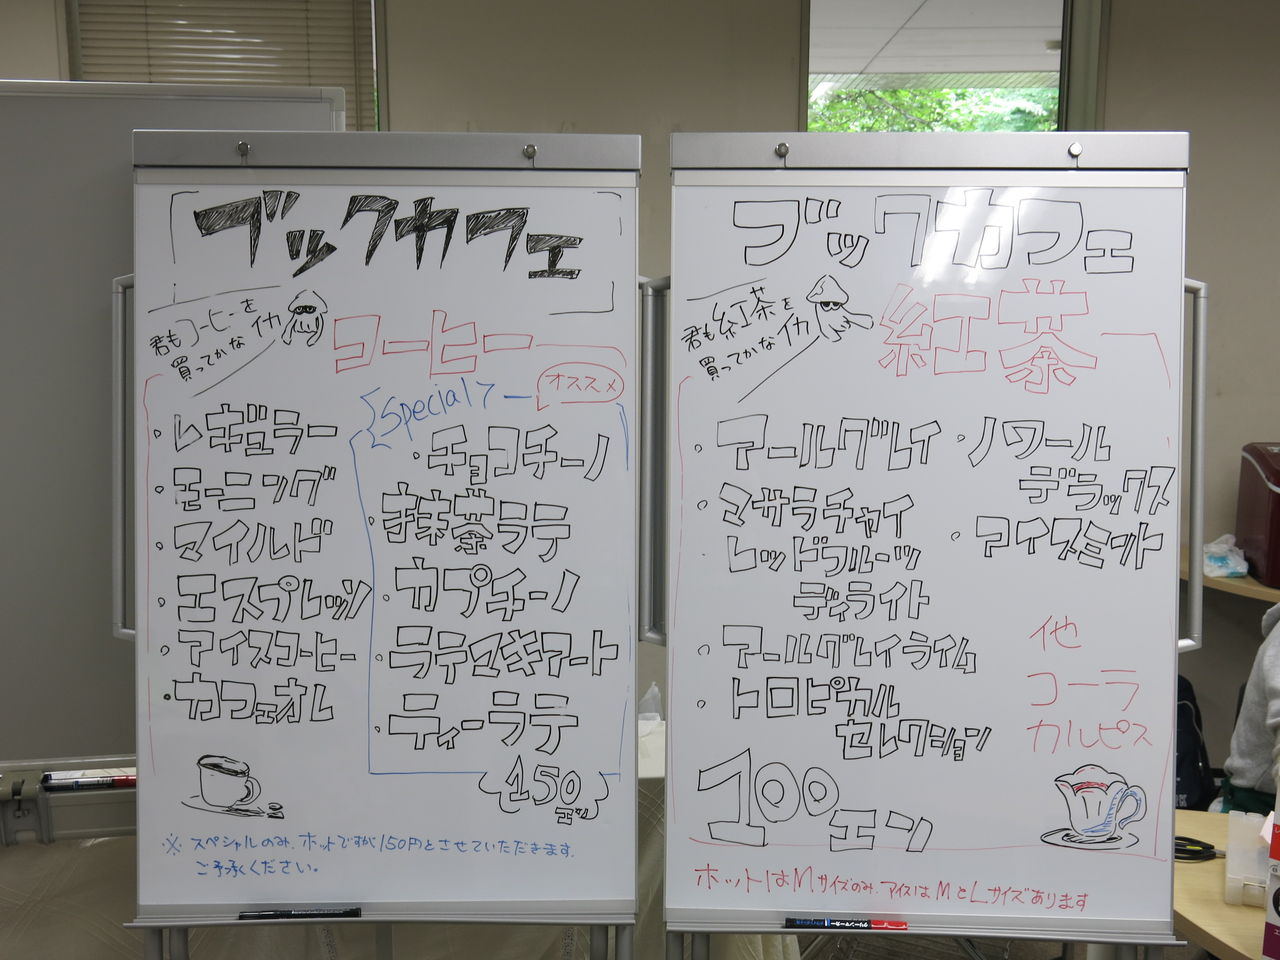 ブックカフェ
君もコーヒーを
買ってかなイカ
コーヒー
・レギュラー
・モーニング
・マイルド
・エスプレッソ
・アイスコーヒー
・カフェオレ
Special
オススメ
・チョコチーノ
・抹茶ラテ
・カプチーノ
・ラテマキアート
・ティーラテ
150エン
※スペシャルのみ、ホットですが150円とさせていただきます。
ご予承ください。
ブックカフェ
君も紅茶を
買ってかなイカ
紅茶
・アールグレイ
・マサラチャイ
・レッドフルーツ
ディライト
・アールグレイライム
・トロピカル
セレクション
・ノワール
デラックス
・アイスミント
他
コーラ
カルピス
100エン
ホットはMサイズのみ、アイスはMとLサイズあります